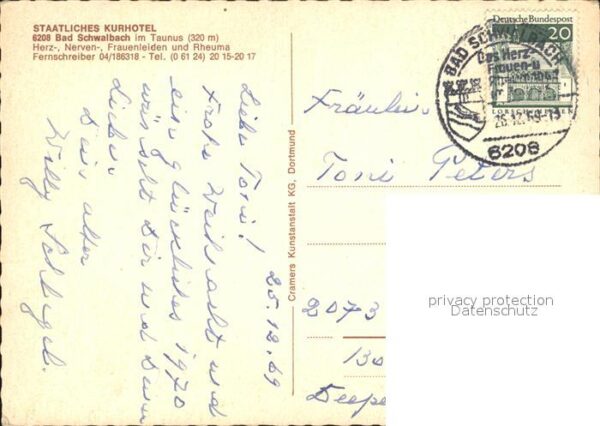 STAATLICHES KURHOTEL
6208 Bad Schwalbach im Taunus (320 m)
Herz-, Nerven-, Frauenleiden und Rheuma
Fernschreiber 04/186318 - Tel. (0 61 24) 20 15-20 17
25.12.69
Liebe Toni!
Frohe Weihnacht und
ein glückliches 1970
wünscht Dir und Deinen
Lieben
Dein alter
Willy
Cramers Kunstanstalt KG, Dortmund
Deutsche Bundespost
20
BAD SCHWALBACH
Das Herz-
Frauen-u
6208
Fräulein
Toni Peters
2073
privacy protection
Datenschutz